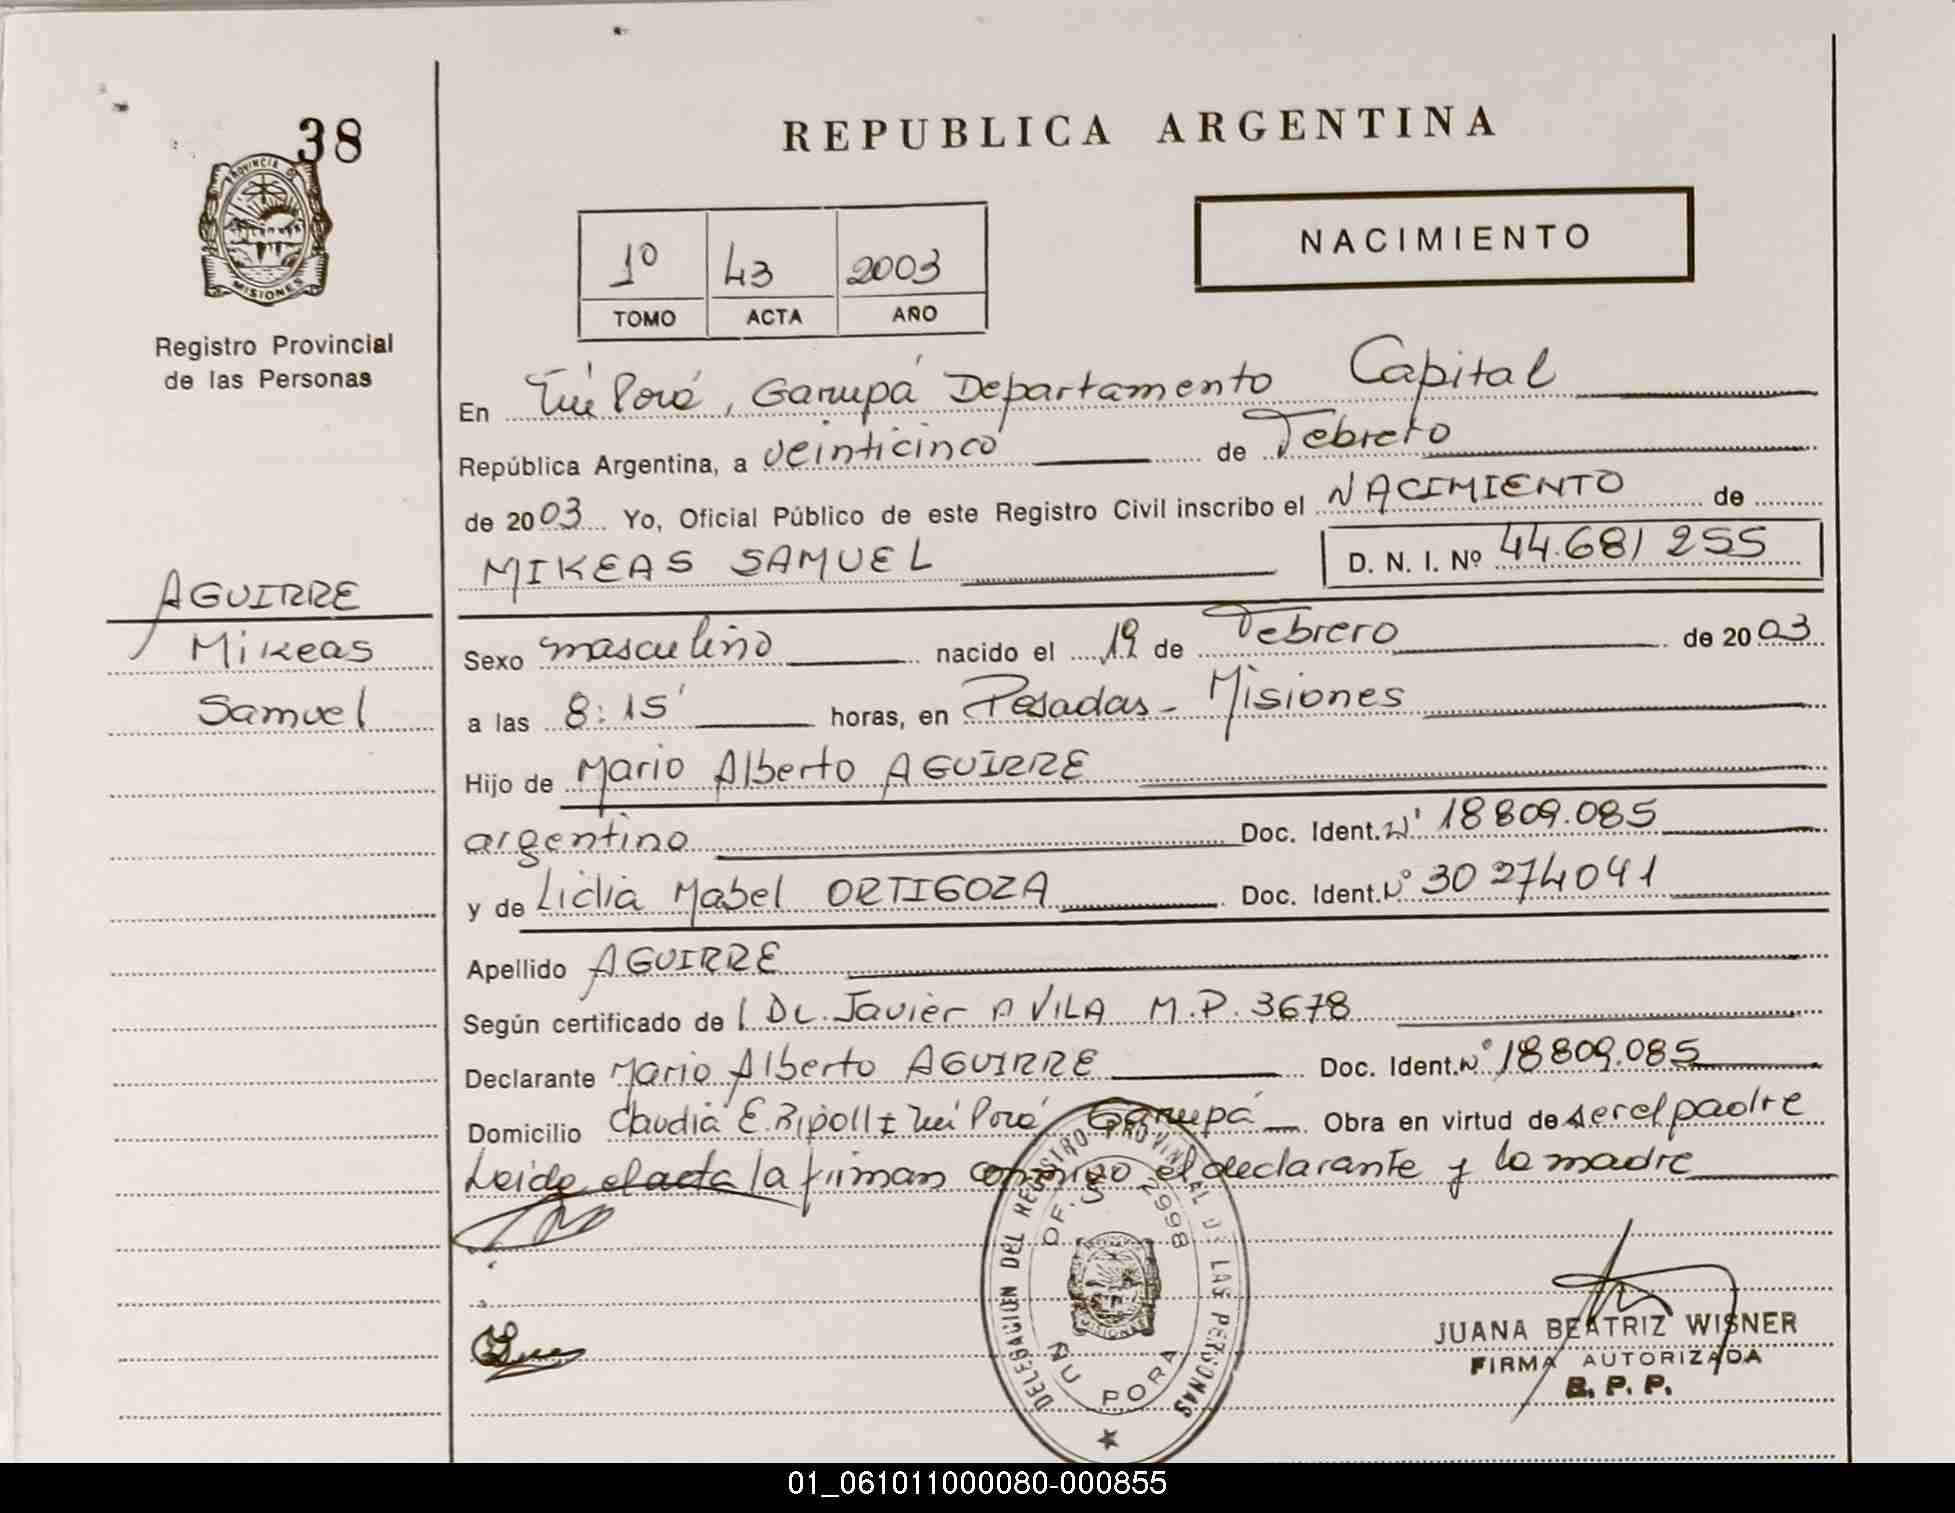 38
PROVINCIA DE
MISIONES
Registro Provincial
de las Personas
REPUBLICA ARGENTINA
1º 43 2003
TOMO ACTA AÑO
NACIMIENTO
En Ñu Porá, Garupá Departamento Capital
República Argentina, a veinticinco de Febrero
de 2003 Yo, Oficial Público de este Registro Civil inscribo el NACIMIENTO de
MIKEAS SAMUEL D. N. I. Nº 44.681 255
AGUIRRE
Mikeas
Samuel
Sexo masculino nacido el 19 de Febrero de 2003
a las 8:15' horas, en Posadas - Misiones
Hijo de Mario Alberto AGUIRRE
argentino Doc. Ident. Nº 18809.085
y de Lidia Mabel ORTIGOZA Doc. Ident. Nº 30 274041
Apellido AGUIRRE
Según certificado de Dr. Javier AVILA M.P. 3678
Declarante Mario Alberto AGUIRRE Doc. Ident. Nº 18809.085
Domicilio Claudia E. Ripoll Ñu Porá Garupá Obra en virtud de ser el padre
Leida el acta la firman conmigo el declarante y la madre
DELEGACION DEL REGISTRO PROVINCIAL DE LAS PERSONAS
OF. 2998
ÑU PORA
JUANA BEATRIZ WISNER
FIRMA AUTORIZADA
R. P. P.
01_061011000080-000855